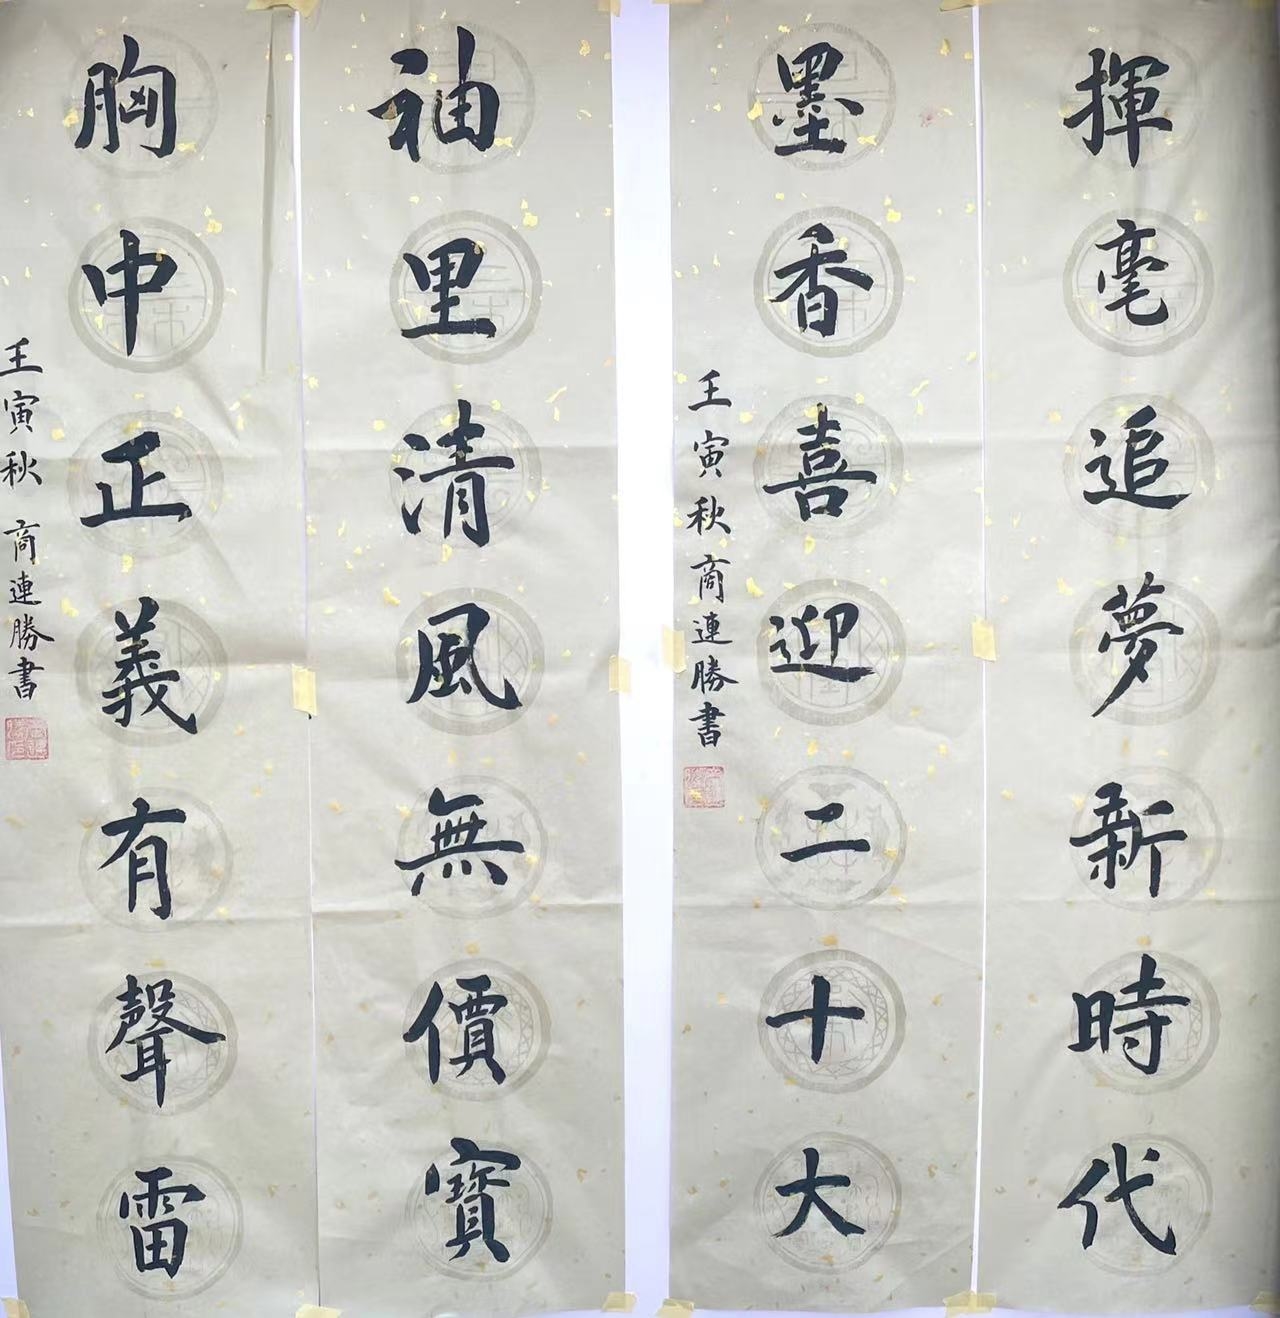 揮毫追夢新時代
墨香喜迎二十大
壬寅秋商連勝書
袖里清風無價寶
胸中正義有聲雷
壬寅秋商連勝書